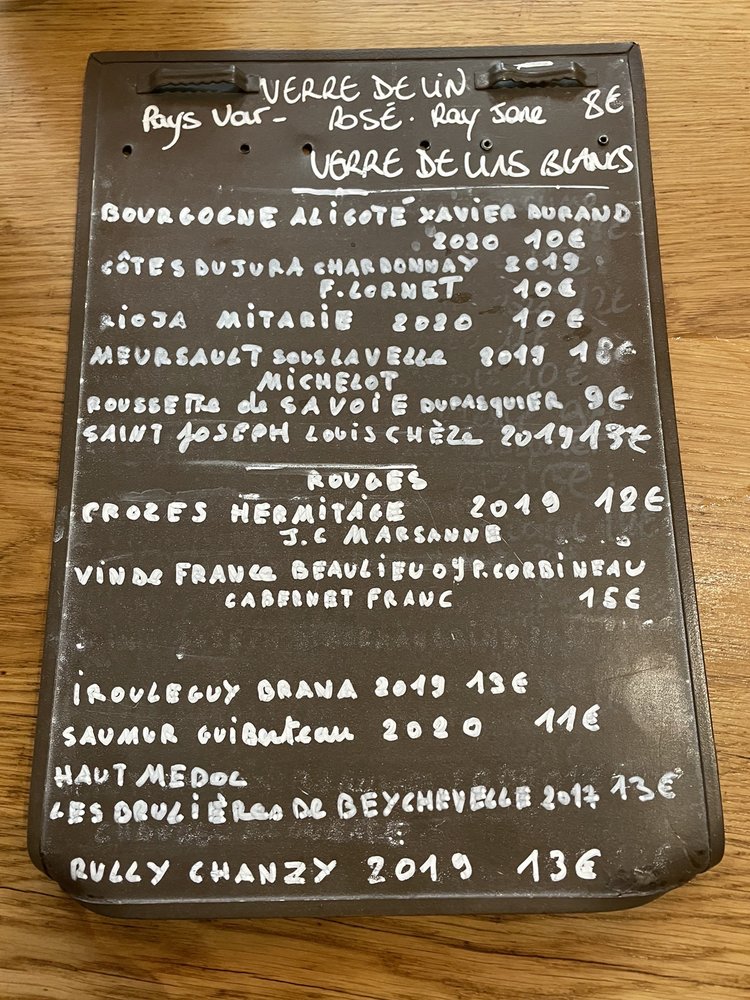 VERRE DE VIN
Pays Var - ROSÉ. Ray Jane 8€
VERRE DE VINS BLANCS
BOURGOGNE ALIGOTÉ XAVIER DURAND
2020 10€
CÔTES DU JURA CHARDONNAY 2019
F. LORNET 10€
RIOJA MITARIE 2020 10€
MEURSAULT SOUS LA VELLE 2019 18€
MICHELOT
ROUSSETTE de SAVOIE DUPASQUIER 9€
SAINT JOSEPH LOUIS CHÈZE 2019 13€
ROUGES
CROZES HERMITAGE 2019 12€
J.C MARSANNE
VIN DE FRANCE BEAULIEU 09 P. CORBINEAU
CABERNET FRANC 15€
IROULEGUY BRANA 2019 13€
SAUMUR GUIBERTEAU 2020 11€
HAUT MEDOC
LES BRULIÈRES DE BEYCHEVELLE 2017 13€
RULLY CHANZY 2019 13€